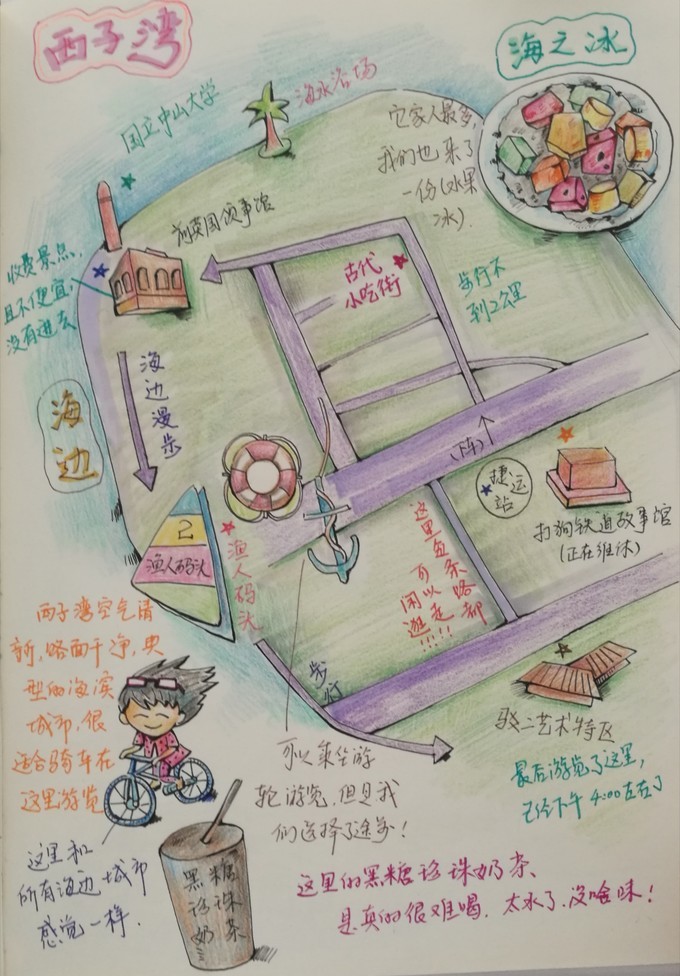 西子湾
海之冰
国立中山大学
海水浴场
它家人最多,
我们也来了
一份(水果
冰).
前英国领事馆
收费景点,
且不便宜,
没有进去
古代
小吃街
步行不
到2公里
海边漫步
海边
(下车)
捷运
站
打狗铁道故事馆
(正在维休)
2
渔人码头
渔人码头
这里每条路都
可以走
闲逛!!!!
西子湾空气清
新,路面干净,典
型的海滨
城市,很
适合骑车在
这里游览
步行
驳二艺术特区
可以乘坐游
轮游览,但是我
们选择了徒步!
最后游览了这里,
已经下午4:00左右了
这里和
所有海边城市
感觉一样.
黑糖
珍珠
奶茶
这里的黑糖珍珠奶茶、
是真的很难喝.太水了.没啥味!